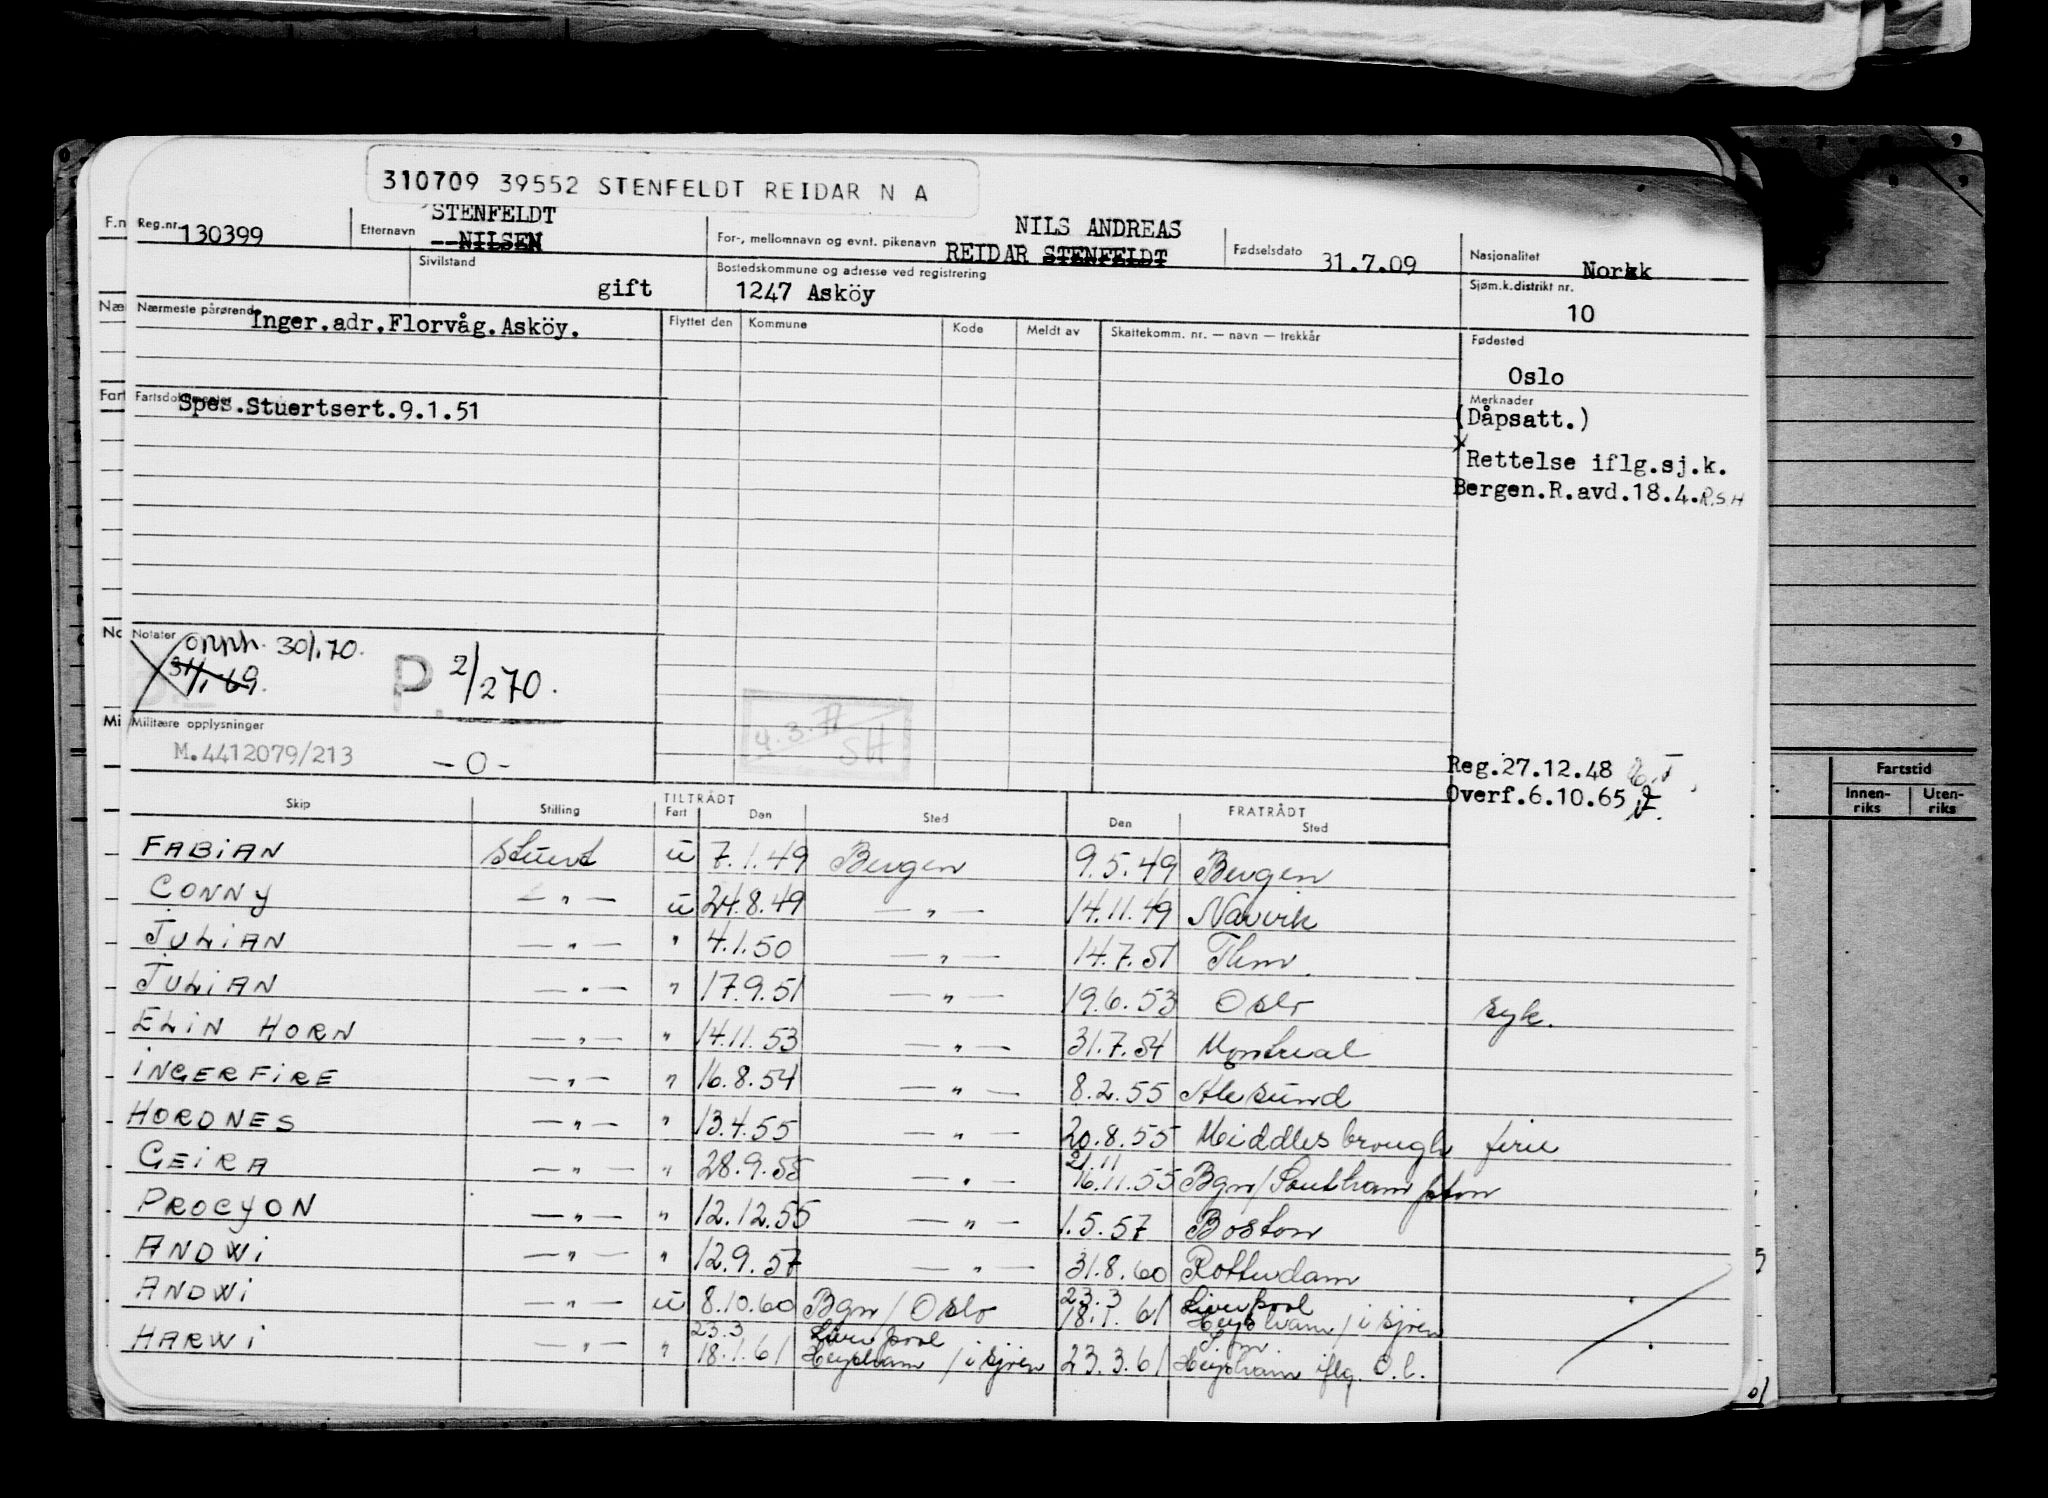 310709 39552 STENFELDT REIDAR N A
F.n Reg.nr. 130399 Etternavn STENFELDT
NILSEN
For-, mellomnavn og evnt. pikenavn NILS ANDREAS
REIDAR STENFELDT
Fødselsdato 31.7.09
Nasjonalitet Norsk
Sivilstand gift
Bostedskommune og adresse ved registrering
1247 Asköy
Sjøm.k.distrikt nr.
10
Næ Nærmeste pårørende Inger.adr.Florvåg.Asköy.
Flyttet den Kommune Kode Meldt av Skattekomm. nr. — navn — trekkår
Fødested
Oslo
Fart Fartsdokumenter
Spes.Stuertsert.9.1.51
Merknader
(Dåpsatt.)
x
Rettelse iflg.sj.k.
Bergen.R.avd.18.4.R.S.H
No Notater
opph. 30/1.70.
31/1-69.
P. 2/270.
Mi Militære opplysninger
M.4412079/213 -0-
SH
Reg.27.12.48
Overf.6.10.65
Skip Stilling TILTRÅDT FRATRÅDT
Fart Den Sted Den Sted
FABIAN Stuert u 7.1.49 Bergen 9.5.49 Bergen
CONNY — " — u 24.8.49 — " — 14.11.49 Narvik
JULIAN — " — " 4.1.50 — " — 14.7.51
JULIAN — " — " 17.9.51 — " — 19.6.53 Oslo syk.
ELIN HORN — " — " 14.11.53 — " — 31.7.54 Montreal
INGERFIRE — " — " 16.8.54 — " — 8.2.55 Alesund
HORDNES — " — " 13.4.55 — " — 20.8.55 Middlesbrough ferie
GEIRA — " — " 28.9.55 — " — 21.11 16.11.55 Bgn/Southampton
PROCYON — " — " 12.12.55 — " — 1.5.57 Boston
ANDWI — " — " 12.9.57 — " — 31.8.60 Rotterdam
ANDWI — " — u 8.10.60 Bgn/Oslo 23.3 18.1.61 Liverpool Heysham/i sjøen
HARWI — " — " 23.3 18.1.61 Liverpool Heysham/i sjøen 23.3.61 Heysham iflg. O.l.
Fartstid
Innen-
riks
Uten-
riks